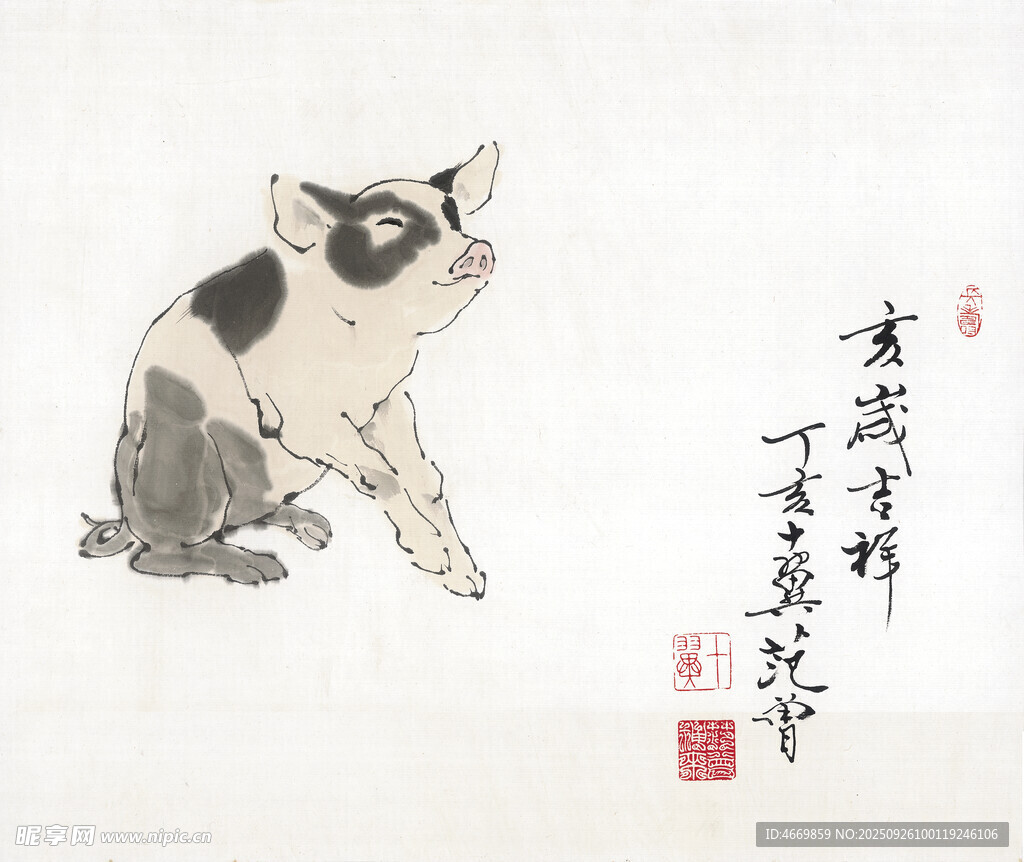 亥歲吉祥
丁亥十翼范曾
十翼
昵享网 www.nipic.cn
ID:4669859 NO:20250926100119246106